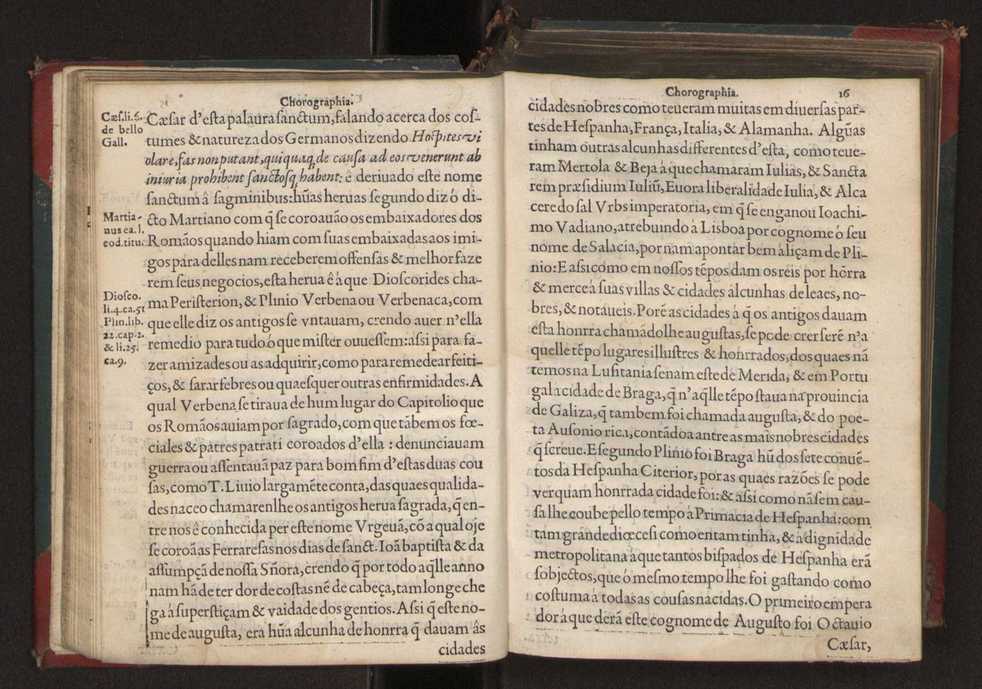 Chorographia.
Cæs.li.6.
de bello
Gall.
Cæsar d'esta palaura sanctum, falando acerca dos cos-
tumes & natureza dos Germanos dizendo Hospites vi
olare, fas non putant, qui quaq; de causa ad eos venerunt ab
iniuria prohibent sanctosq; habent: é deriuado este nome
sanctum â sagminibus: hũas heruas segundo diz ó di-
Martia-
nus ea.l.
eod.titu.
cto Martiano com q̃ se coroauão os embaixadores dos
Romãos quando hiam com suas embaixadas aos imi-
gos para delles nam receberem offensas & melhor faze
rem seus negocios, esta herua ê â que Dioscorides cha-
Diosco.
li.4.ca.51
Plin.lib.
22.cap.2.
& li.25.
ca.9.
ma Peristerion, & Plinio Verbena ou Verbenaca, com
que elle diz os antigos se vntauam, crendo auer n'ella
remedio para tudo ó que mister ouuessem: assi para fa-
zer amizades ou as adquirir, como para remedear feiti-
ços, & sarar febres ou quaesquer outras enfirmidades. A
qual Verbena se tiraua de hum lugar do Capitolio que
os Romãos auiam por sagrado, com que tãbem os fœ-
ciales & patres patrati coroados d'ella : denunciauam
guerra ou assentauã paz para bom fim d'estas duas cou
sas, como T. Liuio largamẽte conta, das quaes qualida-
des naceo chamarenlhe os antigos herua sagrada, q̃ en-
tre nos ê conhecida per este nome Vrgeuã, cõ a qual oje
se coroãas Ferraresas nos dias de sanct. Ioã baptista & da
assumpçã de nossa Sñora, crendo q̃ por todo aq̃lle anno
nam hã de ter dor de costas nẽ de cabeça, tam longe che
ga â superstiçam & vaidade dos gentios. Assi q̃ este no-
me de augusta, era hũa alcunha de honrra q̃ dauam âs
cidades
Chorographia. 16
cidades nobres como teueram muitas em diuersas par-
tes de Hespanha, França, Italia, & Alamanha. Algũas
tinham outras alcunhas differentes d'esta, como teue-
ram Mertola & Beja â que chamaram Iulias, & Sancta
rem præsidium Iuliũ, Euora liberalidade Iulia, & Alca
cere do sal Vrbs imperatoria, em q̃ se enganou Ioachi-
mo Vadiano, atrebuindo â Lisboa por cognome ó seu
nome de Salacia, por nam apontar bem â liçam de Pli-
nio: E assi como em nossos tẽpos dam os réis por hõrra
& merce â suas villas & cidades alcunhas de leaes, no-
bres, & notáueis. Porẽ as cidades â q̃ os antigos dauam
esta honrra chamãdolhe augustas, se pode crer serẽ n'a
quelle tẽpo lugares illustres & honrrados, dos quaes nã
temos na Lusitania senam este de Merida, & em Portu
gal a cidade de Braga, q̃ n'aq̃lle tẽpo staua na prouincia
de Galiza, q̃ tambem foi chamada augusta, & do poe-
ta Ausonio rica, contãdoa antre as mais nobres cidades
q̃ screue. E segundo Plinio foi Braga hũ dos sete conuẽ-
tos da Hespanha Citerior, por as quaes razões se pode
ver quam honrrada cidade foi: & assi como nã sem cau-
sa lhe coube pello tempo â Primacia de Hespanha: com
tam grande diœcesi como entam tinha, & â dignidade
metropolitana â que tantos bispados de Hespanha erã
sobjectos, que ó mesmo tempo lhe foi gastando como
costuma â todas as cousas nacidas. O primeiro empera
dor â que derã este cognome de Augusto foi Octauio
Cæsar,